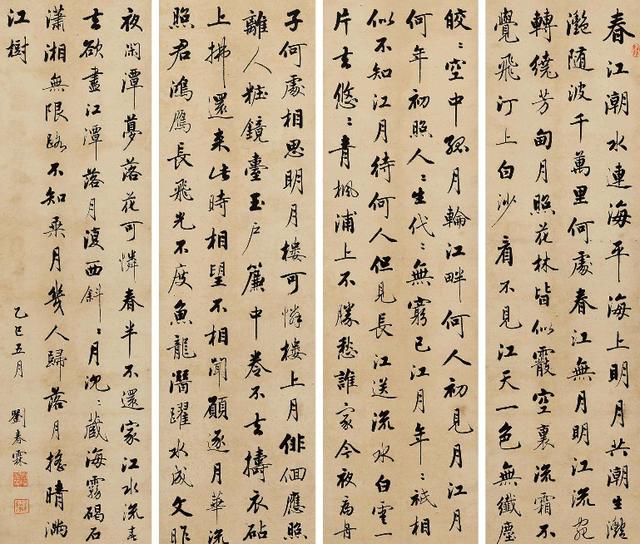 春江潮水連海平海上明月共潮生灧
灧隨波千萬里何處春江無月明江流宛
轉繞芳甸月照花林皆似霰空裏流霜不
覺飛汀上白沙看不見江天一色無纖塵
皎〻空中孤月輪江畔何人初見月江月
何年初照人〻生代〻無窮已江月年〻祇相
似不知江月待何人但見長江送流水白雲一
片去悠〻青楓浦上不勝愁誰家今夜扁舟
子何處相思明月樓可憐樓上月俳佪應照
離人粧鏡臺玉戶簾中卷不去擣衣砧
上拂還來此時相望不相聞願逐月華流
照君鴻鴈長飛光不度魚龍潛躍水成文昨
夜閑潭夢落花可憐春半不還家江水流春
去欲盡江潭落月復西斜〻月沉藏海霧碣石
瀟湘無限路不知乘月幾人歸落月搖情滿
江樹
乙巳五月 劉春霖